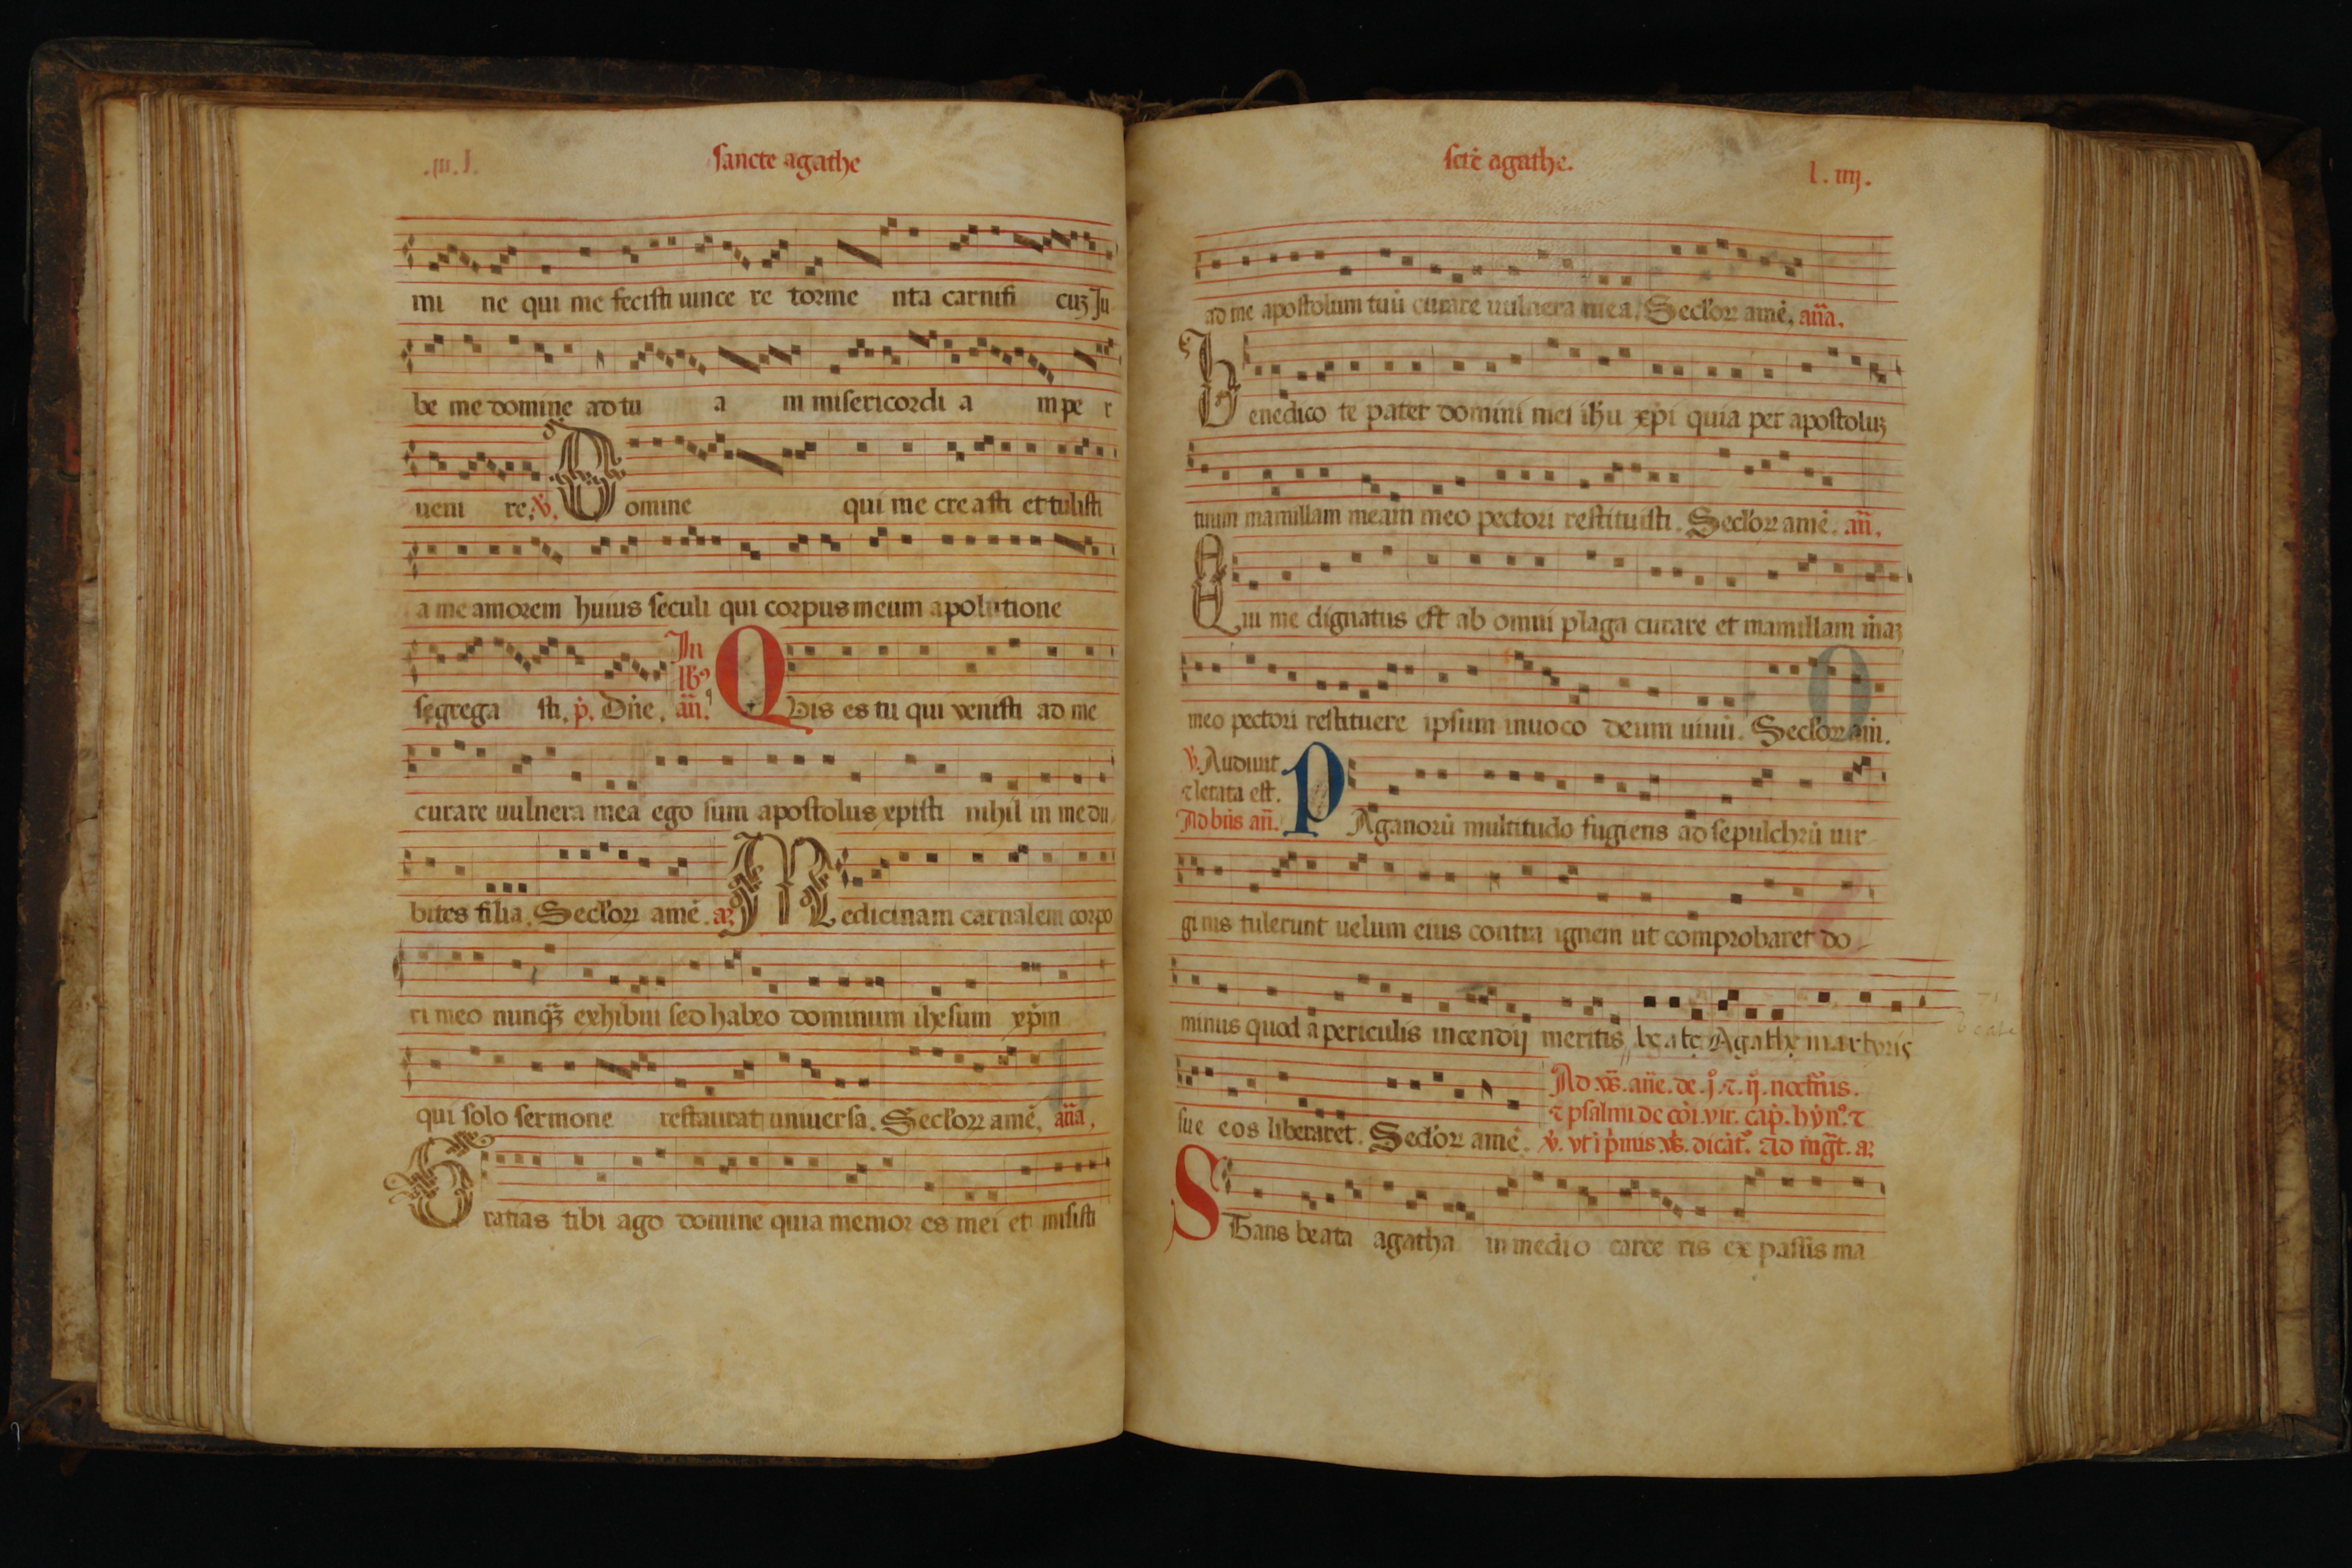 sancte agathe
mi ne qui me fecisti uince re torme nta carnifi cuꝫ Ju
be me domine ad tu a m misericordi a m pe r
ueni re. ℣. Domine qui me cre a sti et tulisti
a me amorem huius seculi qui corpus meum a polutione
segrega sti. p̄. Dn̄e. In lb9 an̄. Qvis es tu qui venisti ad me
curare uulnera mea ego sum apostolus xpisti nihil in me du
bites filia. Secl'oꝝ amē. a. Medicinam carnalem corpo
ri meo nunqꝫ exhibui sed habeo dominum ihesum xp̄m
qui solo sermone restaurat uniuersa. Secl'oꝝ amē. an̄a.
Gratias tibi ago domine quia memor es mei et misisti
scīe agathe.
l. iiij.
ad me apostolum tuū curare uulnera mea. Secl'oꝝ amē. an̄a.
Benedico te pater domini mei ih̄u xp̄i quia per apostoluꝫ
tuum mamillam meam meo pectori restituisti. Secl'oꝝ amē. an̄.
Qui me dignatus est ab omni plaga curare et mamillam m̄aꝫ
meo pectori restituere ipsum inuoco deum uiuū. Secl'oꝝ am̄.
℣. Audiuit
⁊ letata est.
Ad bn̄s an̄. PAganorū multitudo fugiens ad sepulchrū uir
ginis tulerunt uelum eius contra ignem ut comprobaret do
minus quod a periculis incendij meritis be ate Agathe martyris
sue eos liberaret. Secl'oꝝ amē. Ad vs̄. an̄e. de .j̊. ⁊ .ij̊. noct'nis.
⁊ psalmi de cōi. vir. cap̄. hȳn. ⁊
℣. vt i p̄mis vs̄. dicāt'. Ad m̄gt. a.
STans beata agatha in medio carce ris ex passis ma